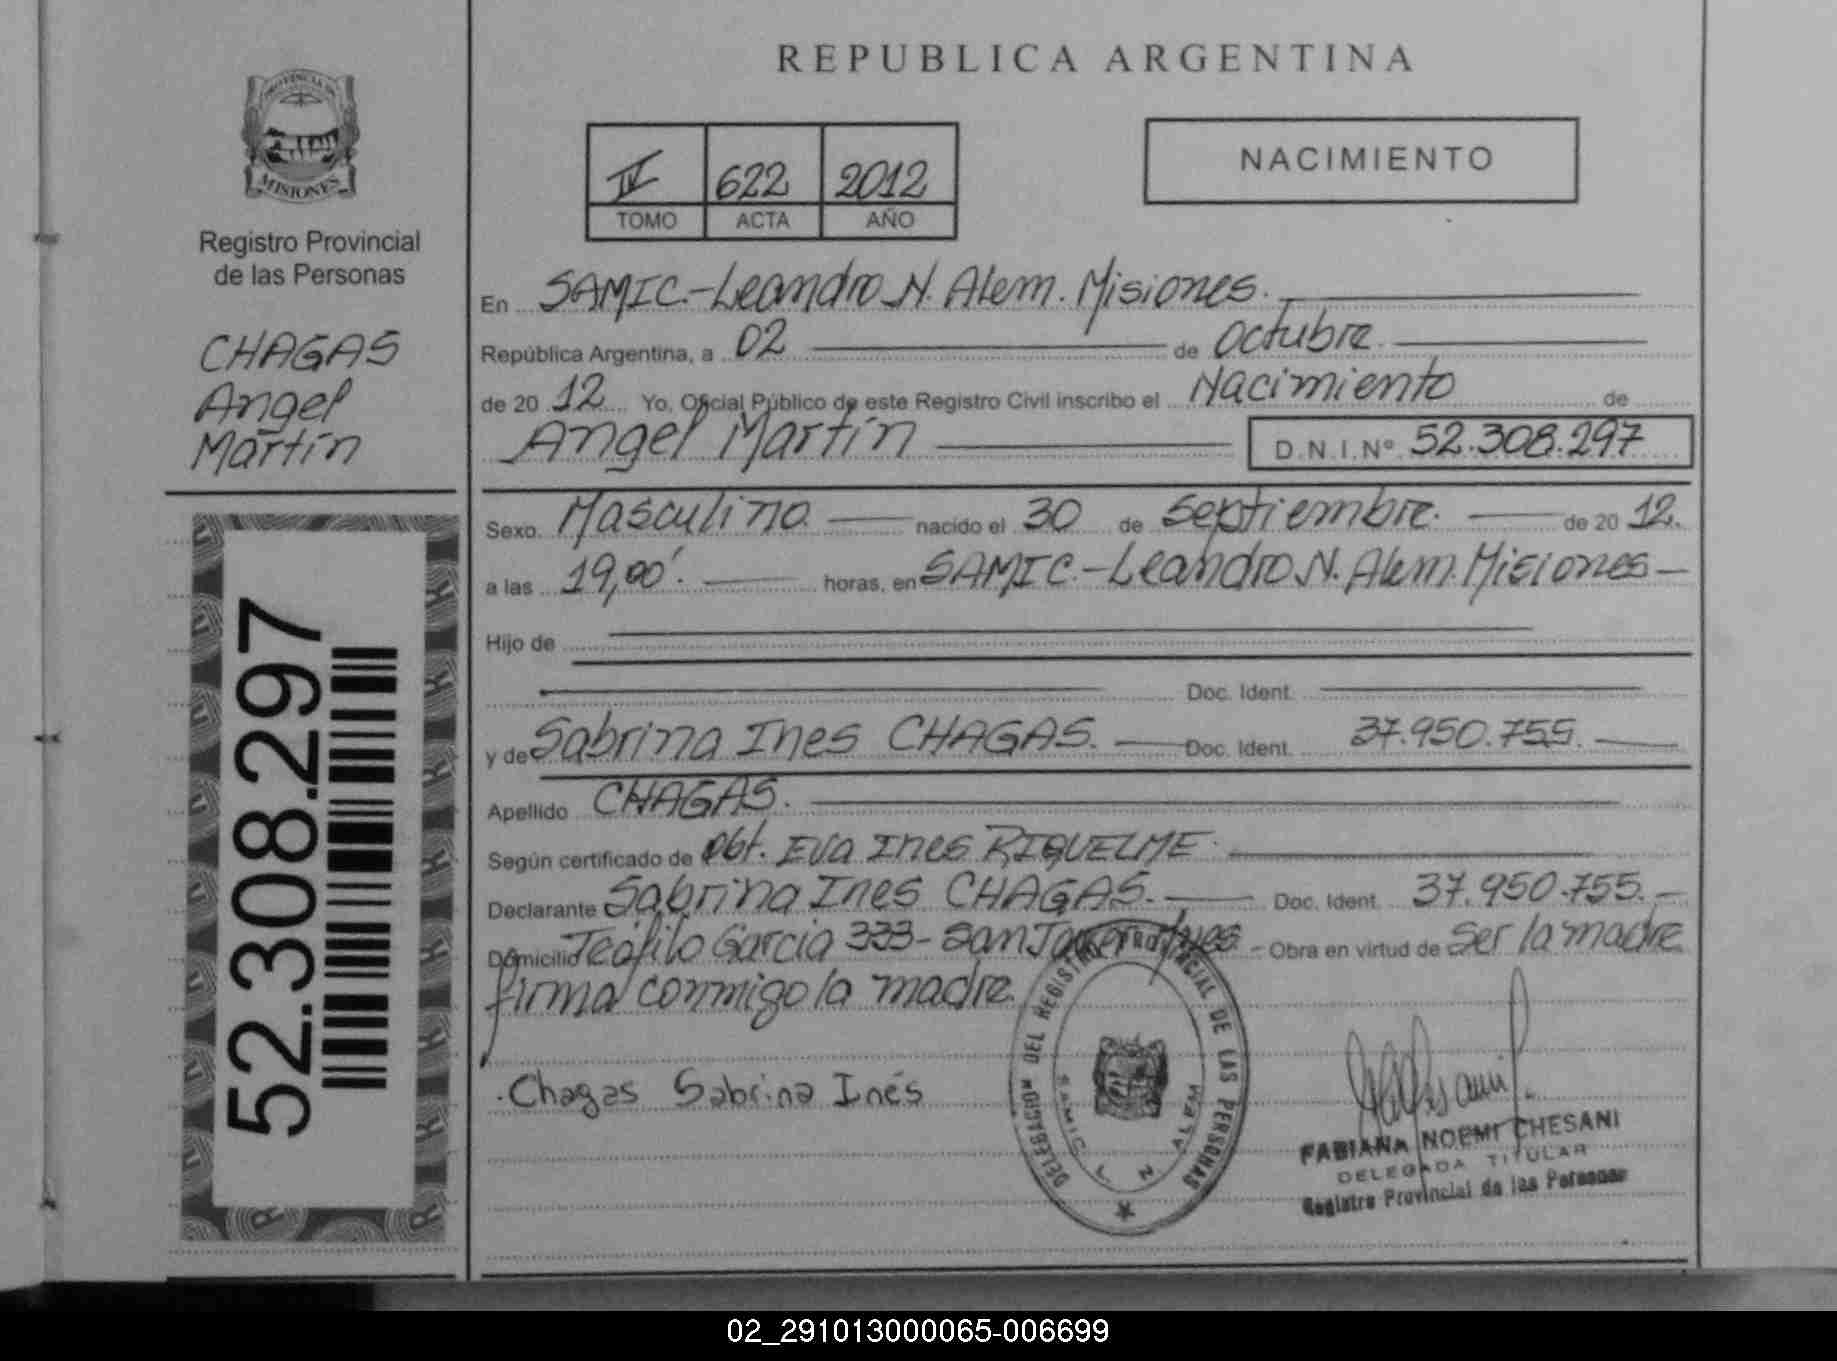 REPUBLICA ARGENTINA
PROVINCIA DE
MISIONES
Registro Provincial
de las Personas
CHAGAS
Angel
Martín
52.308.297
IV 622 2012
TOMO ACTA AÑO
NACIMIENTO
En SAMIC.-Leandro N. Alem. Misiones.
República Argentina, a 02 de Octubre.
de 20 12 Yo, Oficial Público de este Registro Civil inscribo el Nacimiento de
Angel Martín D.N.I.Nº 52.308.297
Sexo. Masculino nacido el 30 de Septiembre. de 20 12.
a las 19,00'. horas, en SAMIC.-Leandro N. Alem. Misiones
Hijo de
Doc. Ident.
y de Sabrina Ines CHAGAS. Doc. Ident. 37.950.755.
Apellido CHAGAS.
Según certificado de obt. Eva Ines RIQUELME.
Declarante Sabrina Ines CHAGAS. Doc. Ident. 37.950.755.-
Domicilio Teófilo Garcia 333- San - Obra en virtud de Ser la madre
firma conmigo la madre.
Chagas Sabrina Inés
DELEGACION DEL REGISTRO PROVINCIAL DE LAS PERSONAS
SAMIC L. N. ALEM
FABIANA NOEMI CHESANI
DELEGADA TITULAR
Registro Provincial de las Personas
02_291013000065-006699